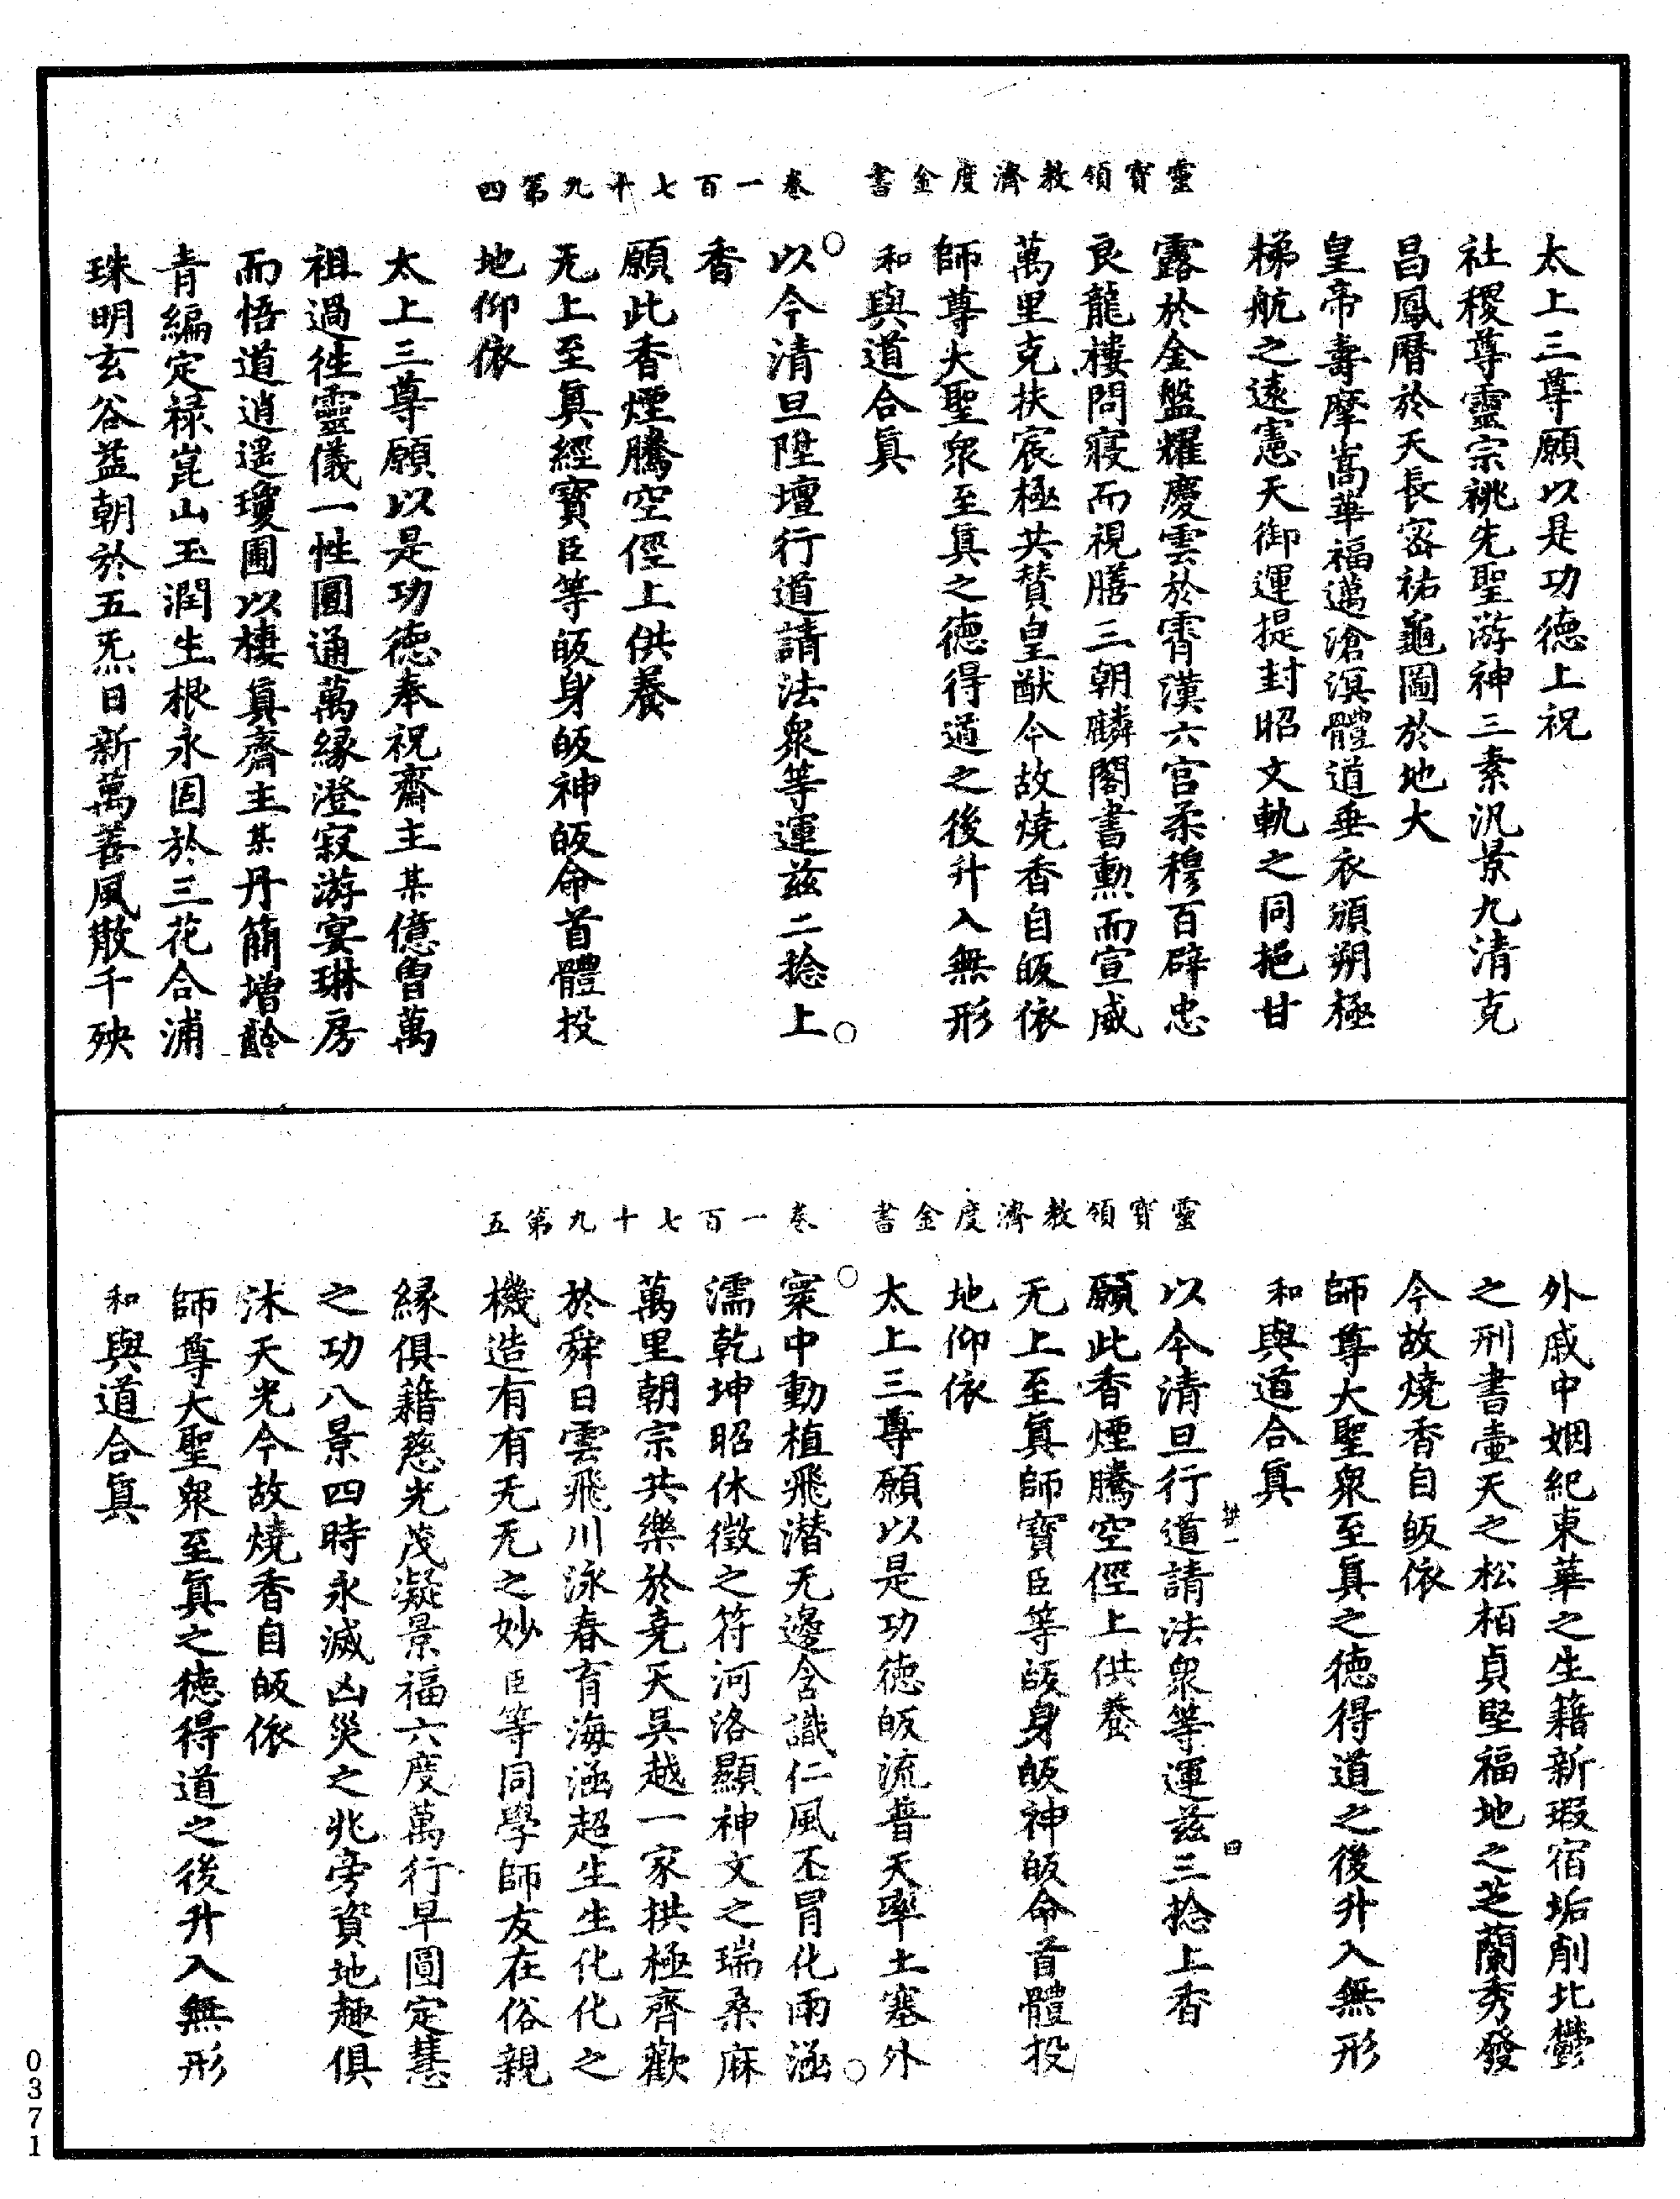 靈寶領教濟度金書　卷一百七十九第四
太上三尊願以是功德上祝
社稷尊靈宗祧先聖游神三素汎景九清克
昌鳳曆於天長密祐龜圖於地大
皇帝壽摩嵩華福邁滄溟體道垂衣頒朔極
梯航之遠憲天御運提封昭文軌之同挹甘
露於金盤耀慶雲於霄漢六宮柔穆百辟忠
良龍樓問寢而視膳三朝麟閣書勲而宣威
萬里克扶宸極共賛皇猷今故燒香自皈依
師尊大聖衆至真之德得道之後升入無形
和與道合真
以今清旦陞壇行道請法衆等運茲二捻上
香
願此香煙騰空徑上供養
无上至真經寶臣等皈身皈神皈命首體投
地仰依
太上三尊願以是功德奉祝齋主某億曾萬
祖過徃靈儀一性圓通萬緣澄寂游宴琳房
而悟道逍遥瓊圃以棲真齋主某丹簡增齡
青編定禄崑山玉潤生根永固於三花合浦
珠明玄谷益朝於五炁日新萬善風散千殃
靈寶領教濟度金書　卷一百七十九第五
外戚中姻紀東華之生籍新瑕宿垢削北酆
之刑書壷天之松栢貞堅福地之芝蘭秀發
今故燒香自皈依
師尊大聖衆至真之德得道之後升入無形
和與道合真
以今清旦行道請法衆等運茲三捻上香
願此香煙騰空徑上供養
无上至真師寶臣等皈身皈神皈命首體投
地仰依
太上三尊願以是功德皈流普天率土塞外
寰中動植飛潛无邊含識仁風丕冒化雨涵
濡乾坤昭休徵之符河洛顯神文之瑞桑麻
萬里朝宗共樂於堯天吳越一家拱極齊歡
於舜日雲飛川泳春育海涵超生生化化之
機造有有无无之妙臣等同學師友在俗親
緣俱籍慈光茂凝景福六度萬行早圓定慧
之功八景四時永滅凶災之兆旁資地趣俱
沐天光今故燒香自皈依
師尊大聖衆至真之德得道之後升入無形
和與道合真
四
0371